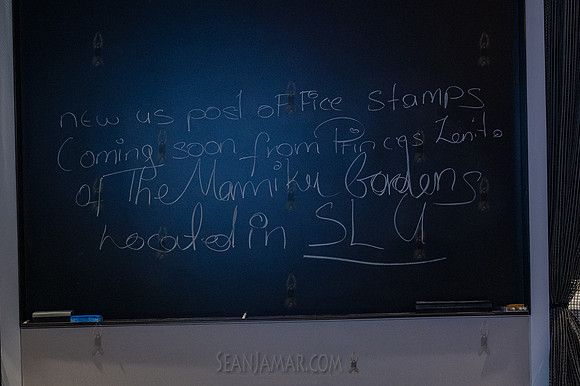 new us post office stamps
Coming soon from Princes Zenita
of The Mamiku Gardens
Located in SLU
SEANJAMAR.COM